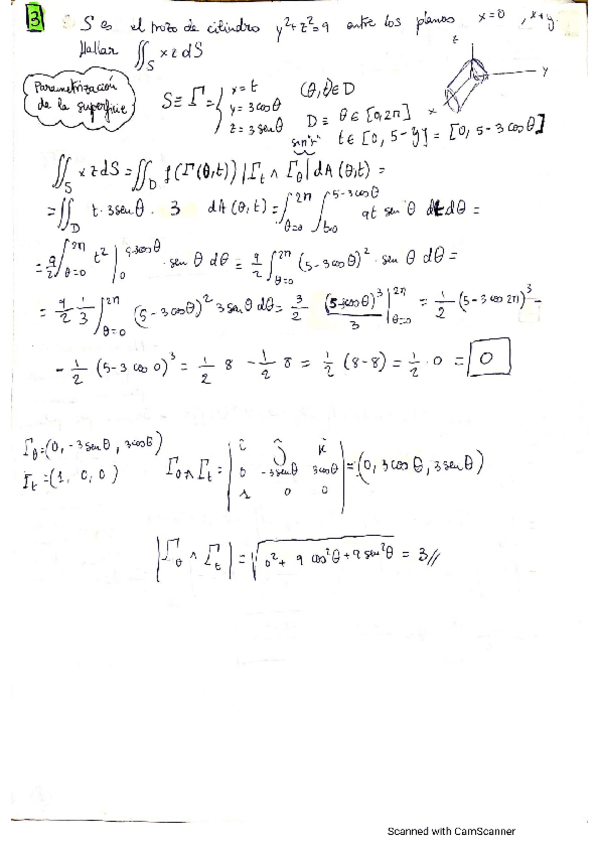 3 S es el trozo de cilindro y²+z²=9 entre los planos x=0, x+y
Hallar ∬_S xz dS
Parametrización
de la superficie
S ≡ Γ = { x = t
y = 3cosθ
z = 3senθ
(θ,t) ∈ D
D ≡ θ ∈ [0,2π]
t ∈ [0, 5-y] = [0, 5-3cosθ]
z
y
x
∬_S xz dS = ∬_D f(Γ(θ,t)) |Γ_t ∧ Γ_θ| dA(θ,t) =
= ∬_D t·3senθ · 3 dA(θ,t) = ∫_{θ=0}^{2π} ∫_{t=0}^{5-3cosθ} 9t senθ dt dθ =
= 9/2 ∫_{θ=0}^{2π} t² |_0^{5-3cosθ} · senθ dθ = 9/2 ∫_{θ=0}^{2π} (5-3cosθ)² · senθ dθ =
= 9/2 1/3 ∫_{θ=0}^{2π} (5-3cosθ)² 3senθ dθ = 3/2 (5-3cosθ)³/3 |_{θ=0}^{2π} = 1/2 (5-3cos2π)³ -
- 1/2 (5-3cos0)³ = 1/2 8 - 1/2 8 = 1/2 (8-8) = 1/2 · 0 = 0
Γ_θ = (0, -3senθ, 3cosθ)
Γ_t = (1, 0, 0)
Γ_θ ∧ Γ_t = | i j k
0 -3senθ 3cosθ
1 0 0 | = (0, 3cosθ, 3senθ)
|Γ_θ ∧ Γ_t| = √(0² + 9cos²θ + 9sen²θ) = 3//
Scanned with CamScanner